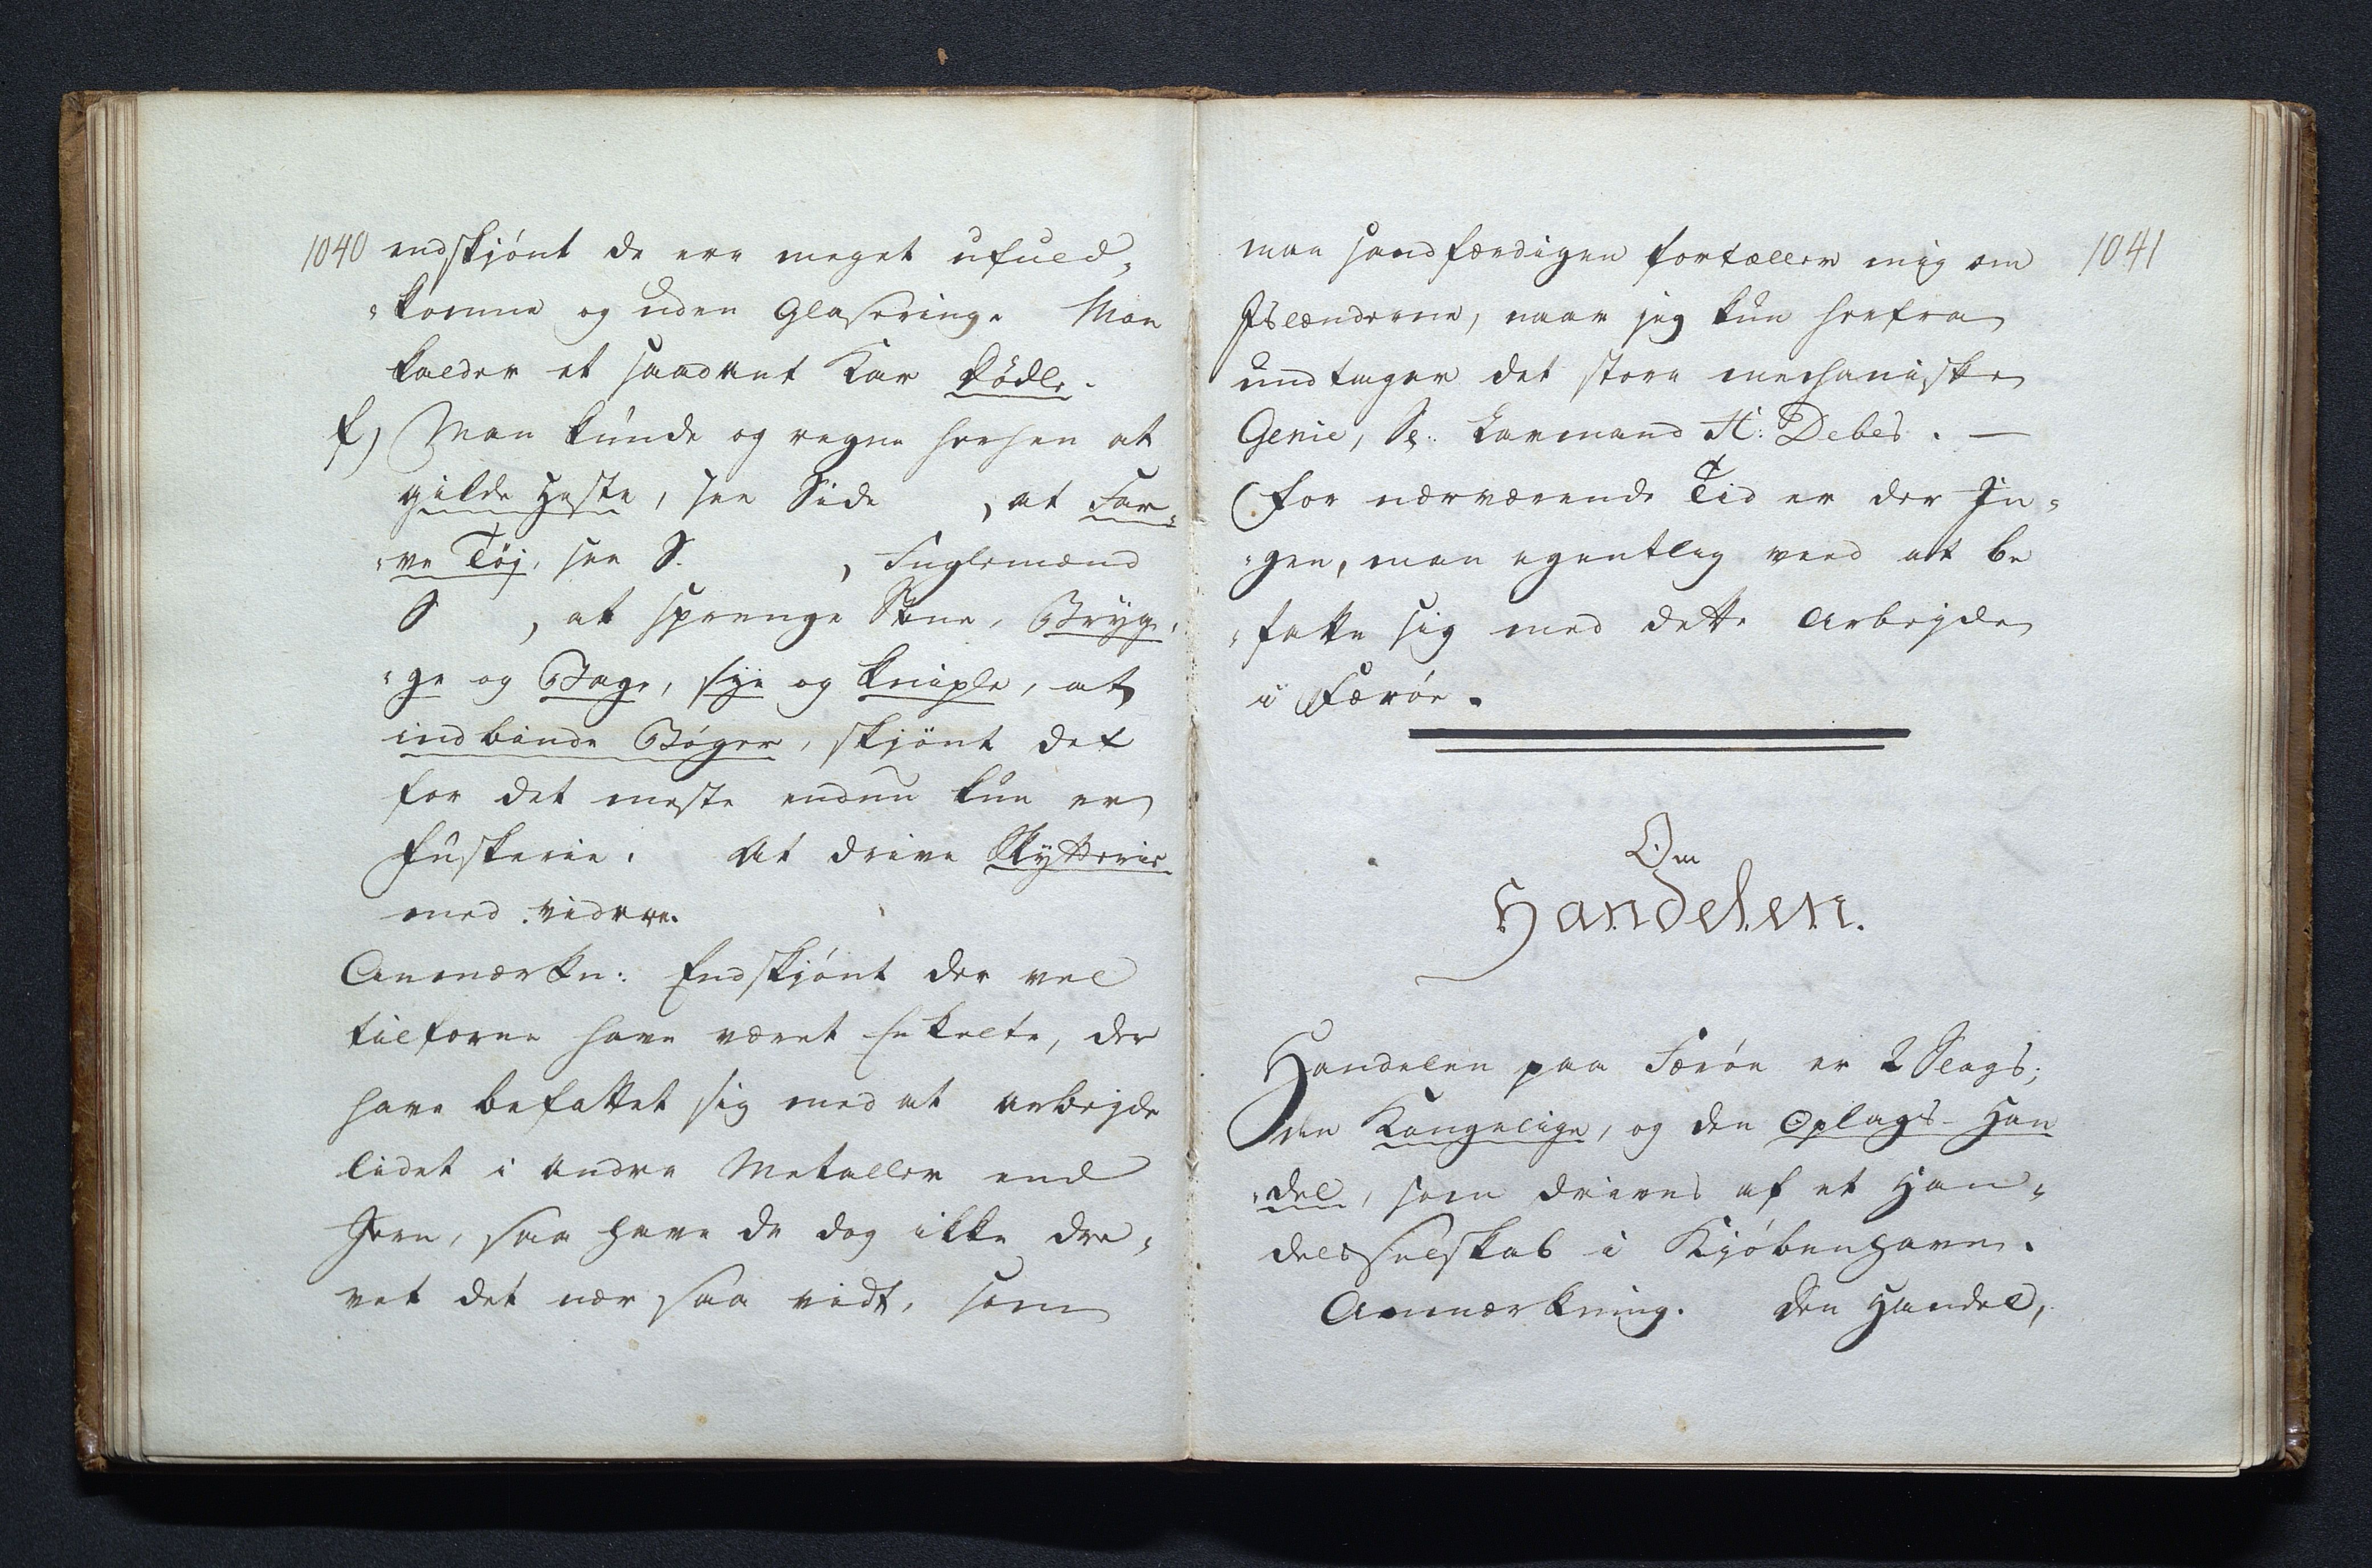 1040 endskjønt de ere meget ufuld,
"komne og uden Glasering. Man
kalder et saadant Kar Dødle.
f) Man kunde og regne herhen at
gilde Heste, see Side , at Far"
"ve Tøj, see S. , Fuglemænd
S , at sprenge Stene, Bryg"
"ge og Bage, sye og kniple, at
indbinde Bøger, skjønt det
for det meste endnu kun er
fuskerie. At drive Skytterie
med videre.
Anmærkn: Endskjønt der vel
tilforne have været Enkelte, der
have befattet sig med at arbejde
lidet i andre Metaller end
Jern, saa have de dog ikke dre"
vet det nær saa vidt, som
1041
man sandfærdigen fortæller mig om
Islænderne, naar jeg kun herfra
undtager det store mechaniske
Genie, Sr: H: Debes. —
For nærværende Tid er der In"
"gen, man egentlig veed at be
"fatte sig med dette Arbejde
i Færøe.
Om
Handelen.
Handelen paa Færøe er 2 Slags;
den Kongelige, og den Oplags-Han
"del, som drives af et Han"
delsselskab i Kjøbenhavn.
Anmærkning. Den Handel,